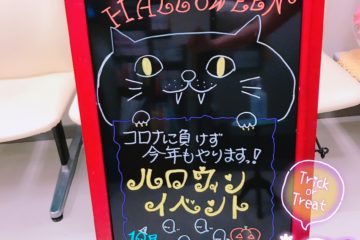 HALLOWEEN
コロナに負けず
今年もやります。!
ハロウィン
イベント
Trick
or
Treat